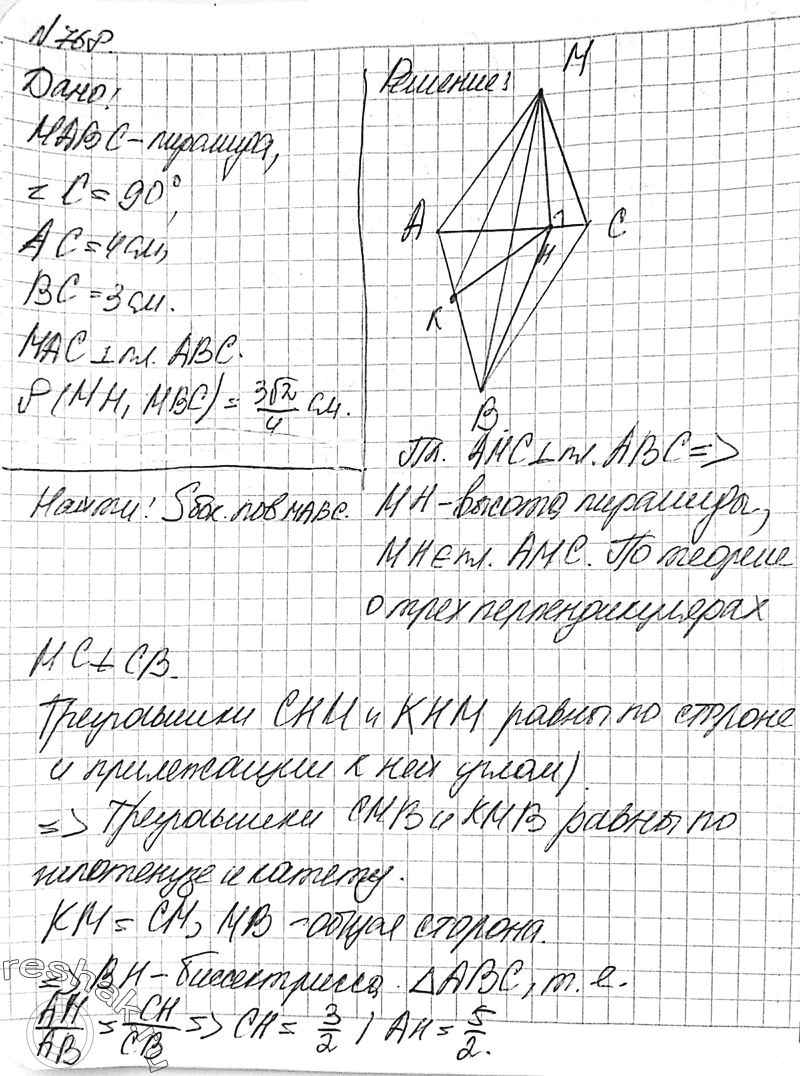 N 768.
Дано:
MABC – пирамида,
∠ C = 90°,
AC = 4 см,
BC = 3 см.
MAC ⊥ пл. ABC.
ρ (MH, MBC) = 3√2/4 см.
Найти: Sбок. пов MABC.
Решение:
M
A
H
C
K
B
Пл. AMC ⊥ пл. ABC =>
MH – высота пирамиды,
MH ∈ пл. AMC. По теореме
о трех перпендикулярах
MC ⊥ CB.
Треугольники CHM и KHM равны по стороне
и прилежащим к ней углам)
=> Треугольники CMB и KMB равны по
гипотенузе и катету.
KM = CM, MB – общая сторона.
=> BH – биссектрисса △ABC, т. е.
AH/AB = CH/CB => CH = 3/2 ; AH = 5/2.
reshak.ru